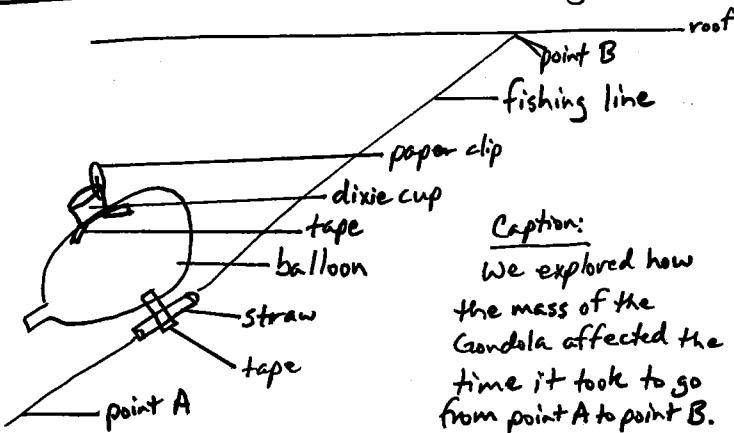 roof
point B
fishing line
paper clip
dixie cup
tape
balloon
straw
tape
point A
Caption:
We explored how
the mass of the
Gondola affected the
time it took to go
from point A to point B.